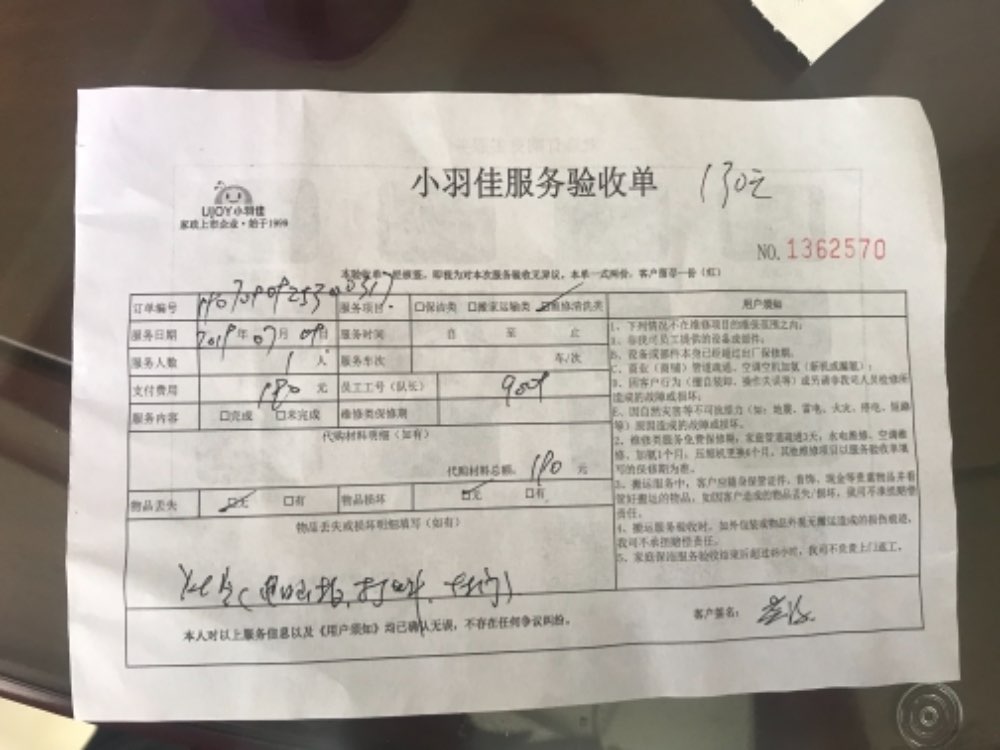 小羽佳服务验收单 130元
UJOY小羽佳
家政上市企业·始于1999
NO. 1362570
本验收单一经签签，即视为对本次服务验收无异议，本单一式两份，客户留存一份（红）
订单编号 服务项目 □保洁类 □搬家运输类 □维修清洗类 用户须知
服务日期 2019年07月09日 服务时间 自 至 止
服务人数 1人 服务车次 车/次
支付费用 180元 员工工号（队长） 9009
服务内容 □完成 □未完成 维修类保修期
代购材料明细（如有）
代购材料总额： 180元
物品丢失 □无 □有 物品损坏 □无 □有
物品丢失或损坏明细填写（如有）
1、下列情况不在维修项目的维保范围之内：
A、非我司员工提供的设备或部件。
B、设备或部件本身已经超过出厂保修期。
C、商业（商铺）管道疏通、空调空机加氨（新机或漏氨）；
D、因客户行为（擅自装卸、操作失误等）或另请非我司人员检修所
造成的故障或损坏。
E、因自然灾害等不可抗原力（如：地震、雷电、火灾、停电、短路
等）原因造成的故障或损坏。
2、维修类服务免费保修期：家庭管道疏通3天，水电维修、空调维
修、加氨1个月，压缩机更换6个月，其他维修项目以服务验收单填
写的保修期为准。
3、搬运服务中，客户应随身保管证件、首饰、现金等贵重物品并看
管好搬运的物品，如因客户造成的物品丢失/损坏，我司不承担赔偿
责任。
4、搬运服务验收时，如外包装或物品外观无搬运造成的损伤痕迹，
我司不承担赔偿责任。
5、家庭保洁服务验收结束后超过48小时，我司不负责上门返工。
本人对以上服务信息以及《用户须知》均已确认无误，不存在任何争议纠纷。
客户签名：